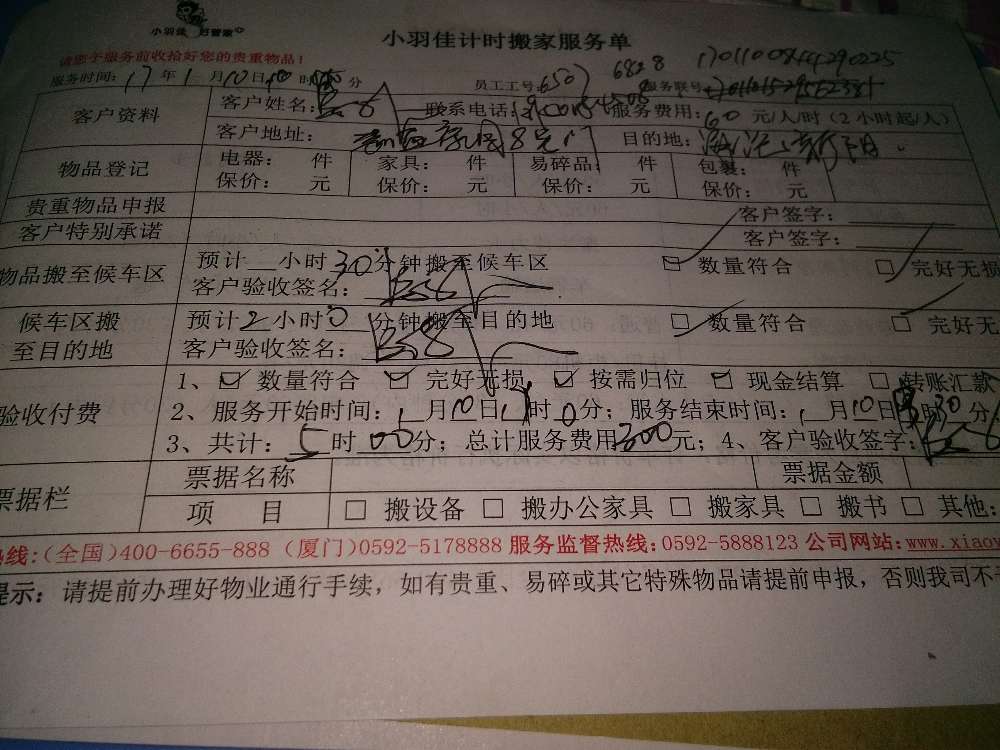 小羽佳 好管家
小羽佳计时搬家服务单
请您于服务前收拾好您的贵重物品！
服务时间：17年1月10日 时 分 员工工号：6507 6828 服务联号 17011008444290225
客户资料 客户姓名： 联系电话： 服务费用：60元/人/时（2小时起/人）
客户地址： 目的地：
物品登记 电器： 件 家具： 件 易碎品： 件 包裹： 件
保价： 元 保价： 元 保价： 元 保价： 元
贵重物品申报 客户签字：
客户特别承诺 客户签字：
物品搬至候车区 预计 小时30分钟搬至候车区 数量符合 完好无损
客户验收签名：
候车区搬至目的地 预计2小时0分钟搬至目的地 数量符合 完好无
客户验收签名：
验收付费 1、数量符合 完好无损 按需归位 现金结算 转账汇款
2、服务开始时间：1月10日 时0分；服务结束时间：1月10日 时30分
3、共计：5时00分；总计服务费用300元；4、客户验收签字：
票据栏 票据名称 票据金额
项 目 搬设备 搬办公家具 搬家具 搬书 其他：
热线:(全国)400-6655-888（厦门)0592-5178888 服务监督热线:0592-5888123 公司网站:www.xiaoy
提示：请提前办理好物业通行手续，如有贵重、易碎或其它特殊物品请提前申报，否则我司不